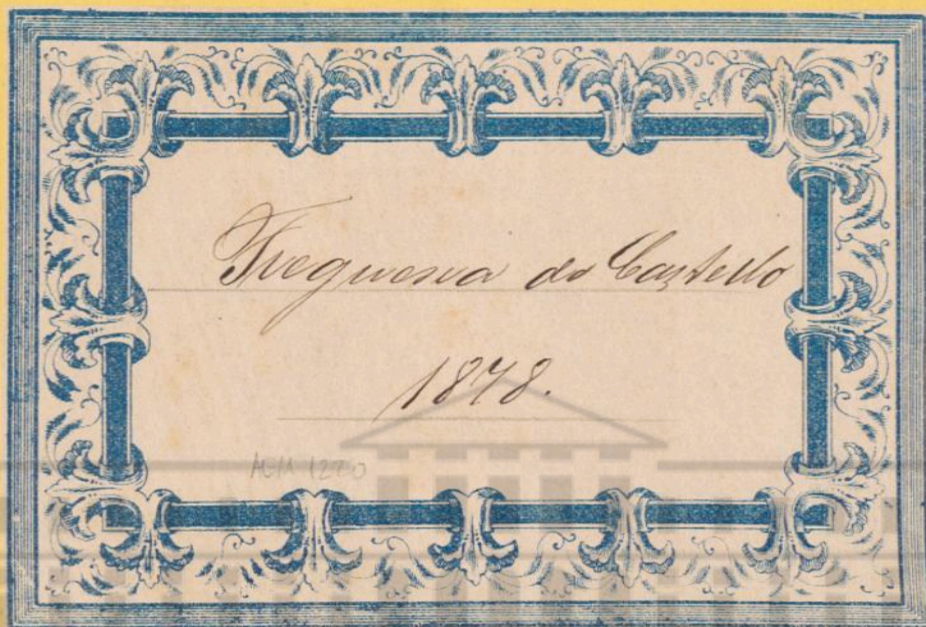 Freguesia do Castello
1878.
AGM 1220